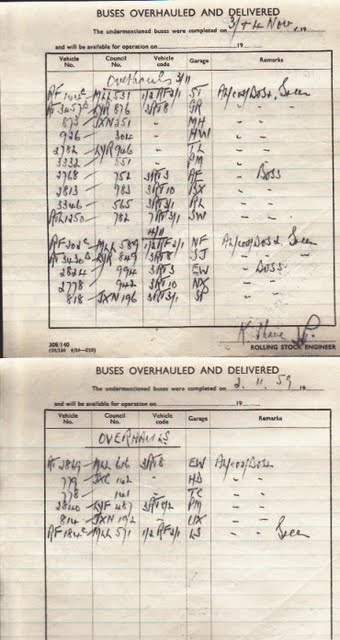 BUSES OVERHAULED AND DELIVERED
The undermentioned buses were completed on 3/+4 Nov. 19
and will be available for operation on 19
Vehicle No. Council No. Vehicle code Garage Remarks
Overhauls 3/11
MLL 531 1/2RF2/1 ST
RT3457 LYR 876 3RT8 GR
873 JXN 251 " MH
926 304 " HW
2782 LYR 946 " TL
3332 551 " PM
2768 752 3RT3 AF - Boss
2813 783 3RT10 BX " "
3346 565 3RT3/1 RL " "
RT1250 782 7RT3/1 SW " "
4/11
RF 202 MLL 589 1/2RF2/1 NF
RT3430 LYR 849 3RT8 SJ " "
2824 994 3RT3 EW - Boss
2778 942 3RT10 NX " "
818 JXN 196 3RT3/1 SP " "
ROLLING STOCK ENGINEER
BUSES OVERHAULED AND DELIVERED
The undermentioned buses were completed on 2. 11. 59 19
and will be available for operation on 19
Vehicle No. Council No. Vehicle code Garage Remarks
OVERHAULS
MLL 616 3RT8 EW
779 JXC 142 " HD " "
778 141 " TC " "
2840 LYF 487 PM " "
814 JXN 192 " UX " "
RF184 MLL 571 1/2RF2/1 LS " " Green